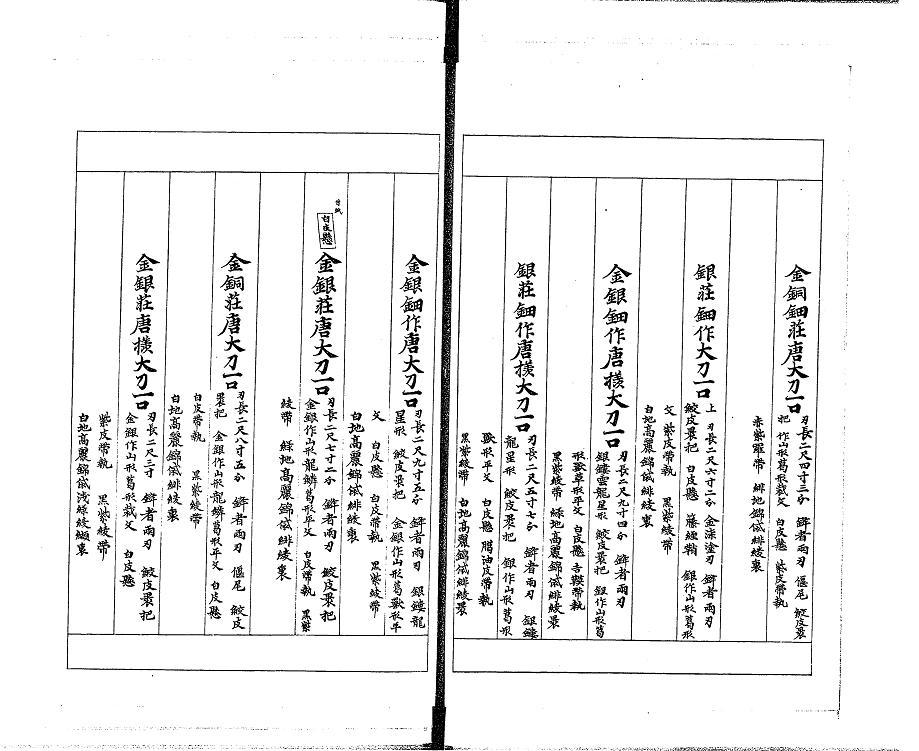 金銅鈿荘唐大刀一口
刃長二尺四寸三分　鋒者両刃　偃尾　鮫皮褁
把　作山形葛形裁文　白皮懸　紫皮帯執
赤紫羅帯　緋地錦袋緋綾裏
銀荘鈿作大刀一口
上　刃長二尺六寸二分　金漆塗刃　鋒者両刃
鮫皮褁把　白皮懸　藤纏鞘　銀作山形葛形
文　紫皮帯執　黒紫綾帯
白地高麗錦袋緋綾裏
金銀鈿作唐様大刀一口
刃長二尺九寸四分　鋒者両刃
銀鏤雲龍星形　鮫皮褁把　銀作山形葛
形獣草形平文　白皮懸　吉鞖帯執
黒紫綾帯　緑地高麗錦袋緋綾裏
銀荘鈿作唐様大刀一口
刃長二尺五寸七分　鋒者両刃　銀鏤
龍星形　鮫皮褁把　銀作山形葛形
獣形平文　白皮懸　臈油皮帯執
黒紫綾帯　白地高麗錦袋緋綾裏
金銀鈿作唐大刀一口
刃長二尺九寸五分　鋒者両刃　銀鏤龍
星形　鮫皮褁把　金銀作山形葛獣形平
文　白皮懸　白皮帯執　黒紫綾帯
白地高麗錦袋緋綾裏
白皮懸
金銀荘唐大刀一口
刃長二尺七寸二分　鋒者両刃　鮫皮褁把
金銀作山形龍鱗葛形平文　白皮帯執　黒紫
綾帯　緑地高麗錦袋緋綾裏
金銅荘唐大刀一口
刃長二尺八寸五分　鋒者両刃　偃尾　鮫皮
褁把　金銀作山形龍鱗葛形平文　白皮懸
白皮帯執　黒紫綾帯
白地高麗錦袋緋綾裏
金銀荘唐様大刀一口
刃長二尺三寸　鋒者両刃　鮫皮褁把
金銀作山形葛形裁文　白皮懸
紫皮帯執　黒紫綾帯
白地高麗錦袋浅緑綾纈裏